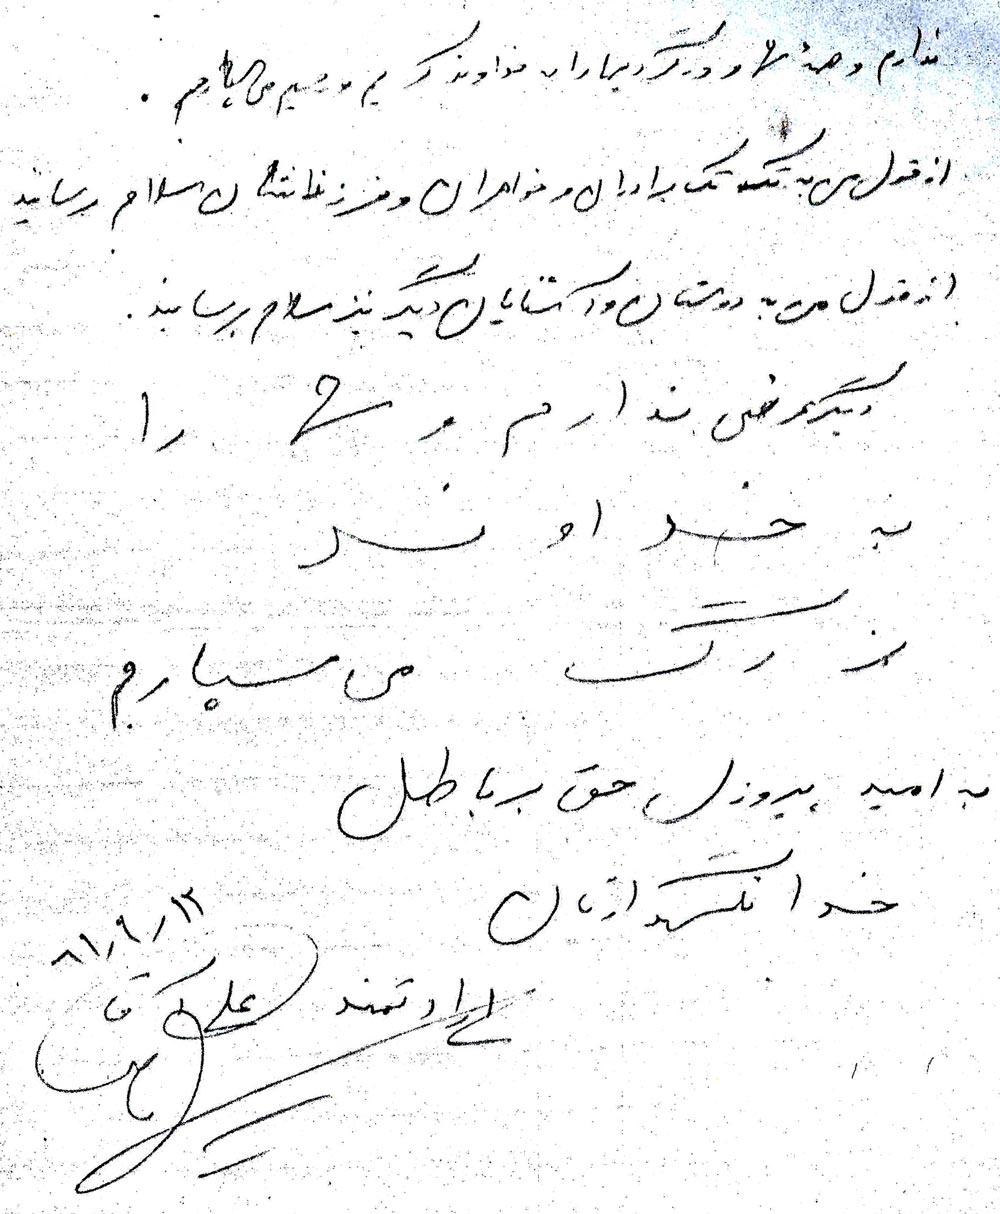 ندارم و همهٔ شما و دیگر بیماران خداوند کریم و رحیم می‌سپارم.
از قول من به تک تک برادران و خواهران و فرزندانشان سلام رسانید
از قول من به دوستان و آشنایان دیگر نیز سلام برسانید.
دیگر عرضی ندارم و شما را
به خداوند
بزرگ می سپارم
به امید پیروزی حق بر باطل
خدا نگهدارتان
۸۱/۹/۱۲
ارادتمند علی